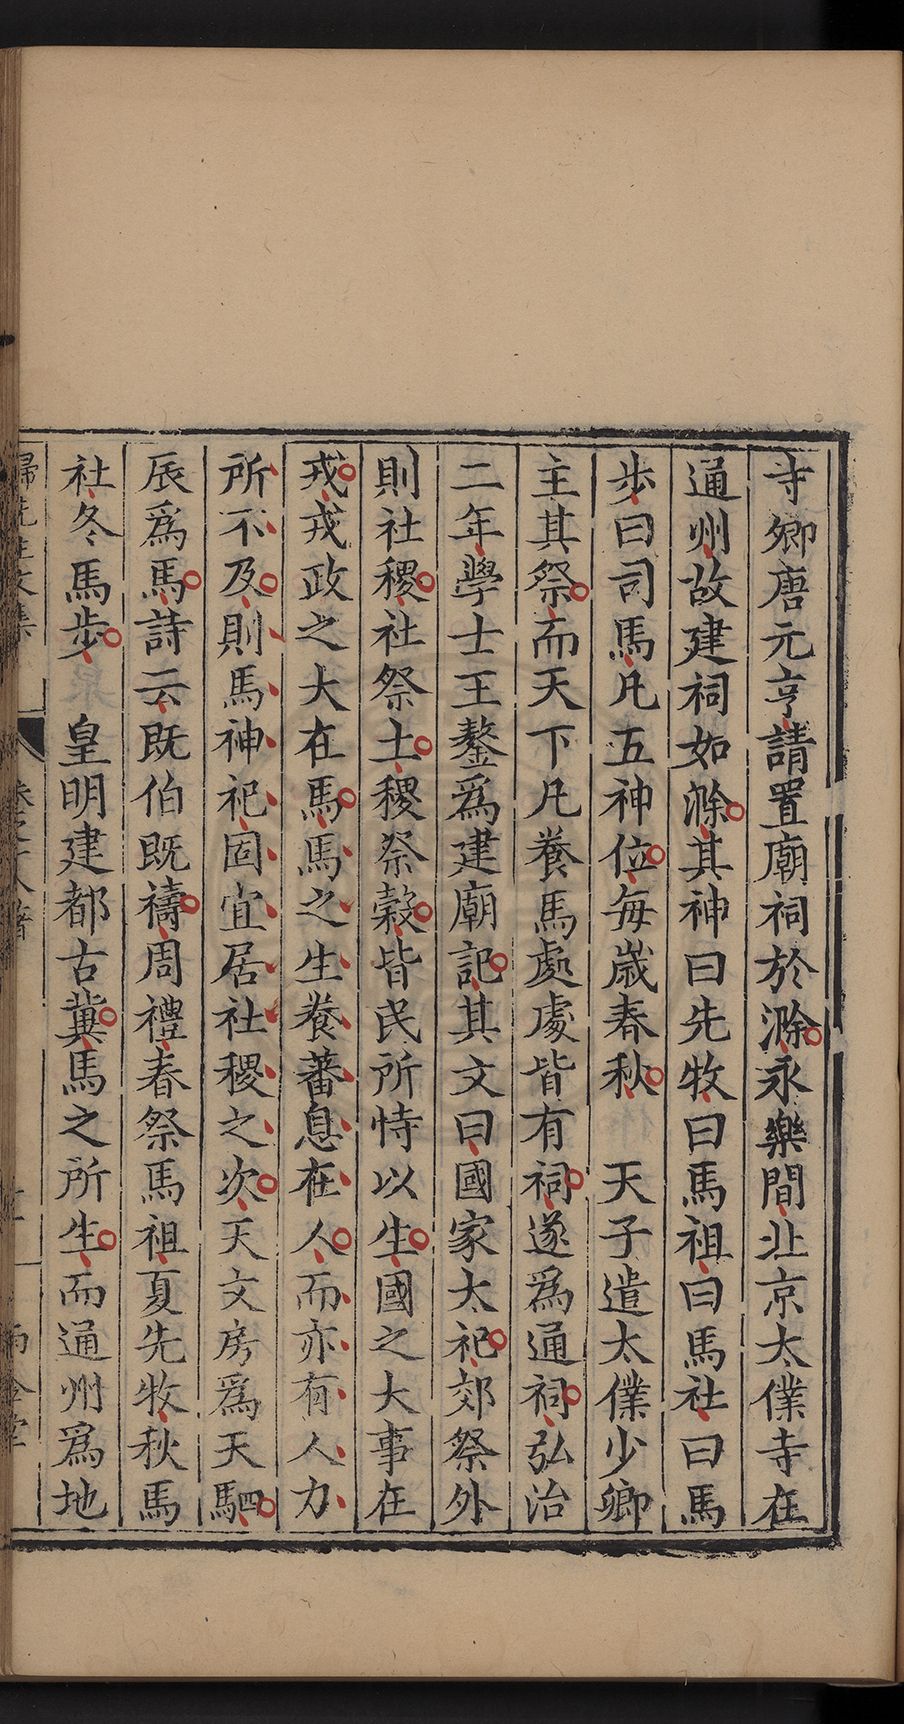 寺卿唐元亨請置廟祠於滁永樂間北京太僕寺在
通州故建祠如滁其神曰先牧曰馬祖曰馬社曰馬
步曰司馬凡五神位每歲春秋　天子遣太僕少卿
主其祭而天下凡養馬處處皆有祠遂爲通祠弘治
二年學士王鏊爲建廟記其文曰國家太祀郊祭外
則社稷社祭土稷祭穀皆民所恃以生國之大事在
戎戎政之大在馬馬之生養蕃息在人而亦有人力
所不及則馬神祀固宜居社稷之次天文房爲天駟
辰爲馬詩云既伯既禱周禮春祭馬祖夏先牧秋馬
社冬馬步　皇明建都古冀馬之所生而通州爲地